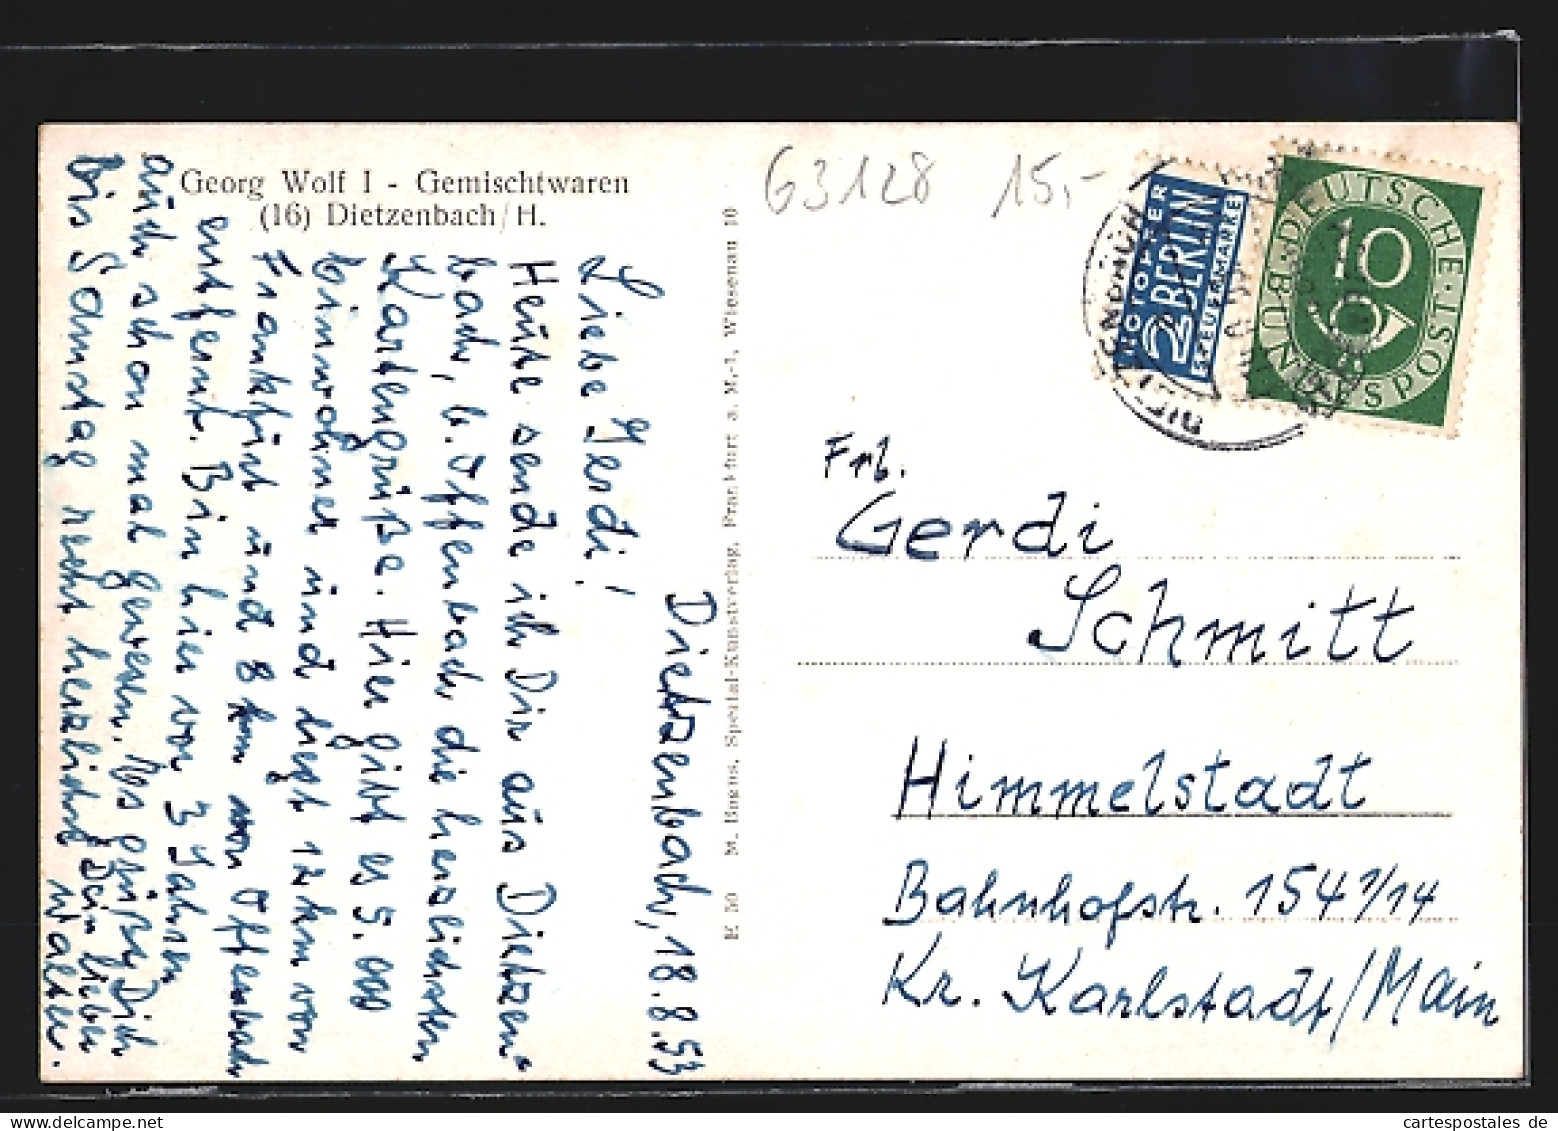 Georg Wolf I - Gemischtwaren
(16) Dietzenbach/H.
Dietzenbach, 18.8.53
Liebe Gerdi!
Heute sende ich Dir aus Dietzen-
bach, b. Offenbach die herzlichsten
Kartengrüße. Hier gibt es 5.000
Einwohner und liegt 12 km von
Frankfurt und 8 km von Offenbach
entfernt. Bin hier vor 3 Jahren
auch schon mal gewesen. Es grüßt Dich
bis Samstag recht herzlichst Dein lieber
Walter.
K 50 M. Bogus, Spezial-Kunstverlag, Frankfurt a. M.-1, Wiesenau 10
G3128 15,-
NOTOPFER
2 BERLIN
STEUERMARKE
DEUTSCHE BUNDESPOST
10
Frl.
Gerdi
Schmitt
Himmelstadt
Bahnhofstr. 154 1/14
Kr. Karlstadt/Main
cartespostales de